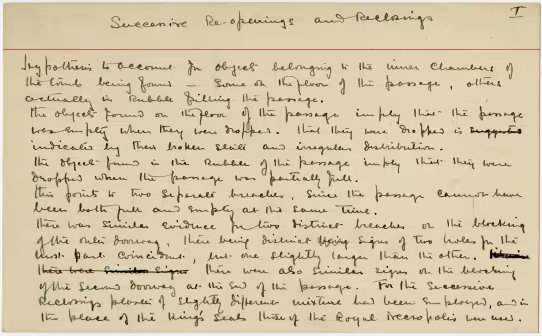 I
Successive Re-openings and Reclosings
Hypothesis to account for objects belonging to the inner Chambers of
the tomb being found – Some on the floor of the passage, others
actually in Rubble filling the passage.
The objects found on the floor of the passage imply that the passage
was empty when they were dropped. That they were dropped is suggested
indicated by their broken state and irregular distribution.
The objects found in the Rubble of the passage imply that they were
dropped when the passage was partially full.
This points to two separate breaches, since the passage cannot have
been both full and empty at the same time.
There was similar evidence for two distinct breaches on the blocking
of the outer doorway, there being distinct signs of two holes for the
most part coincident, but one slightly larger than the other.
there were similar signs there were also similar signs on the blocking
of the Second doorway at the end of the passage. For the Successive
Reclosings plaster of slightly different mixture had been employed, and in
the place of the King's Seals those of the Royal Necropolis were used.